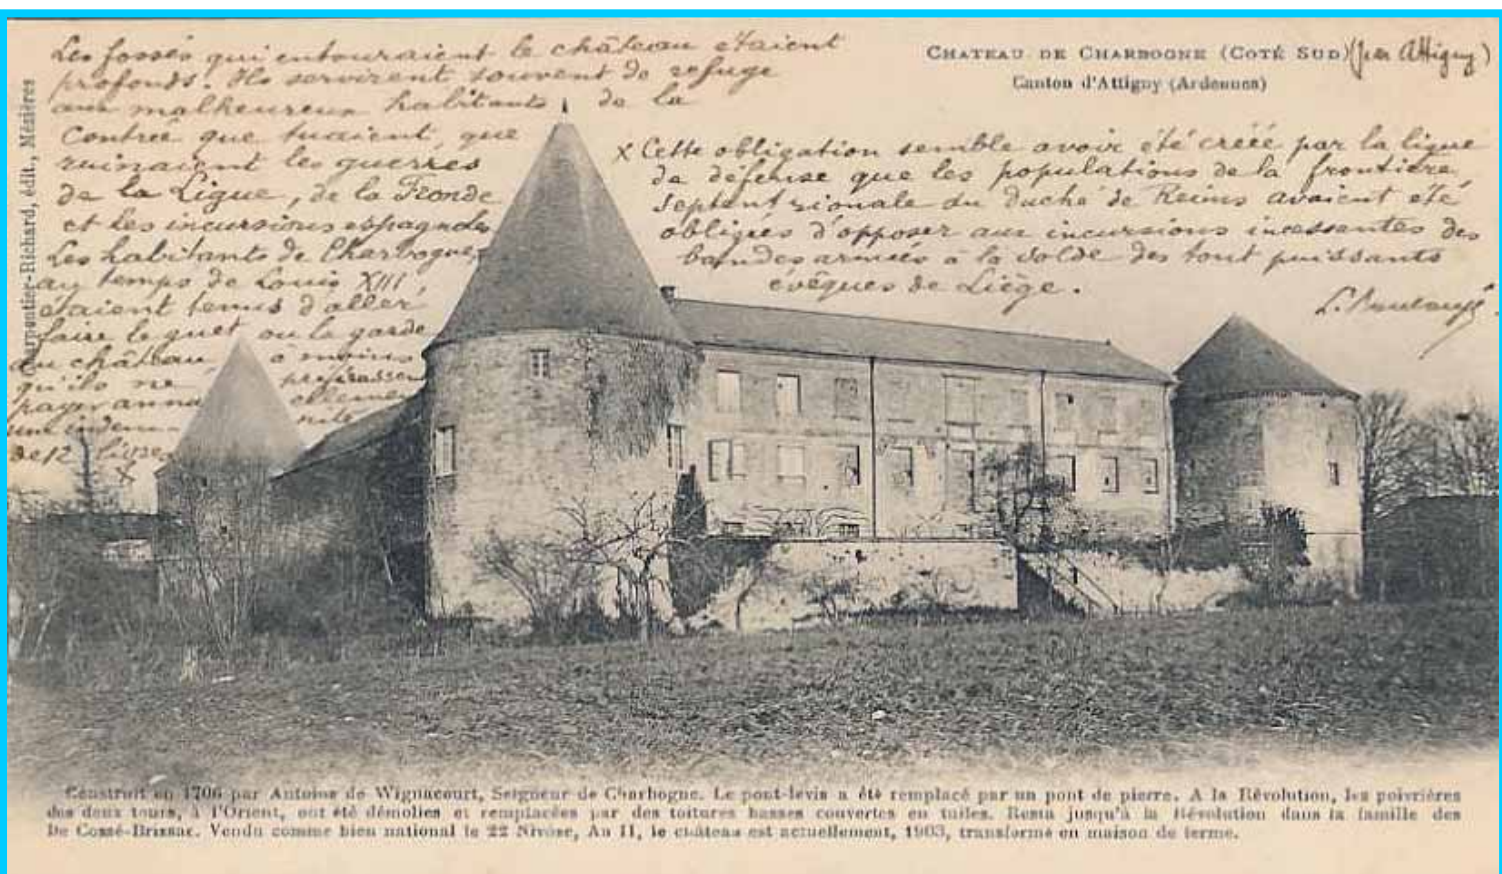 CHATEAU DE CHARBOGNE (COTÉ SUD) (par Attigny)
Canton d'Attigny (Ardennes)
Les fossés qui entouraient le château étaient
profonds. Ils servirent souvent de refuge
aux malheureux habitants de la
contrée que tuaient, que
ruinaient les guerres
de la Ligue, de la Fronde
et les incursions espagnoles
Les habitants de Charbogne,
au temps de Louis XIII,
étaient tenus d'aller
faire le guet ou la garde
au château, a moins
qu'ils ne préférassent
payer annuellement
une indemnité
de 12 livres
x
x Cette obligation semble avoir été créée par la ligue
de défense que les populations de la frontière
septentrionale du duché de Reims avaient été
obligées d'opposer aux incursions incessantes des
bandes armées à la solde des tout puissants
évêques de Liège.
Carpentier-Richard, édit., Mézières
Construit en 1706 par Antoine de Wignacourt, Seigneur de Charbogne. Le pont-levis a été remplacé par un pont de pierre. A la Révolution, les poivrières
des deux tours, à l'Orient, ont été démolies et remplacées par des toitures basses couvertes en tuiles. Resta jusqu'à la Révolution dans la famille des
De Cossé-Brissac. Vendu comme bien national le 22 Nivôse, An II, le château est actuellement, 1903, transformé en maison de ferme.